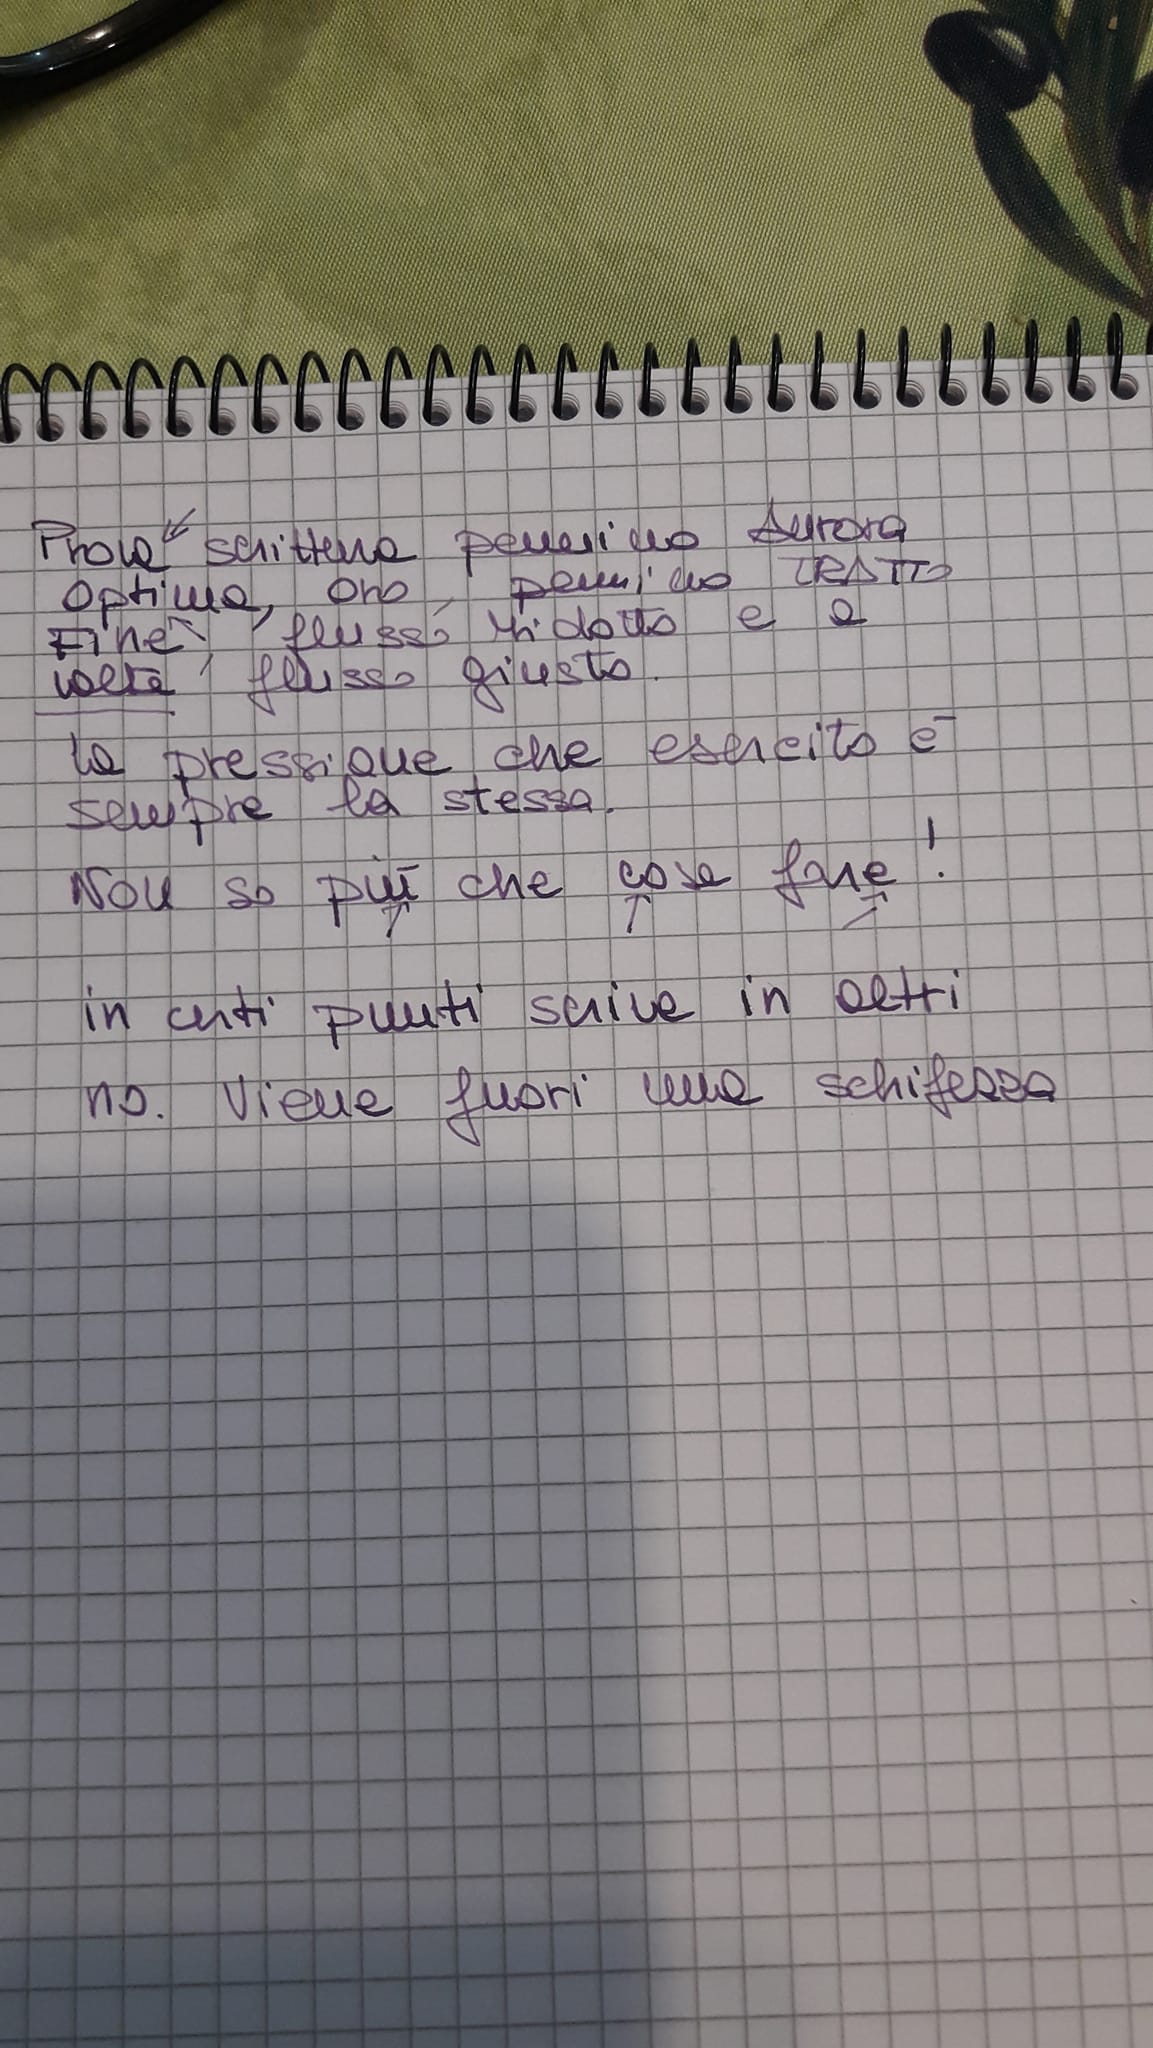 Prova scrittura pennino Aurora
Optima, oro, pennino TRATTO
FINE, flusso ridotto e a
volte, flusso giusto.
la pressione che esercito è
sempre la stessa.
Non so più che cosa fare!
in certi punti scrive in altri
no. Viene fuori una schifezza